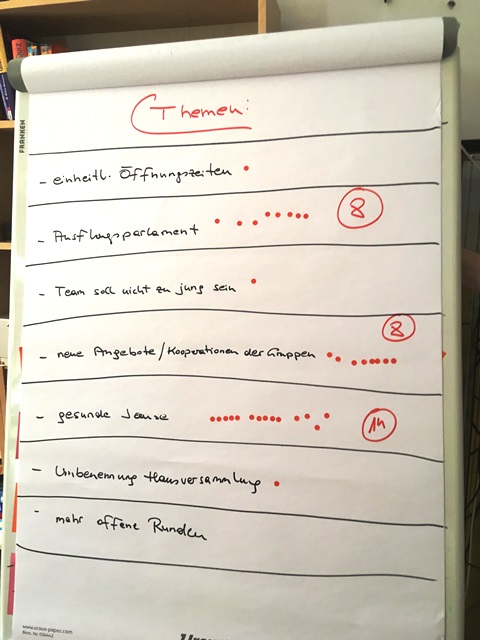 Themen:
- einheitl. Öffnungszeiten
- Ausflugsparlament
8
- Team soll nicht zu jung sein
8
- neue Angebote/Kooperationen der Gruppen
- gesunde Jause
14
- Umbenennung Hausversammlung
- mehr offene Runden
FRANKEN
www.ursus-paper.com